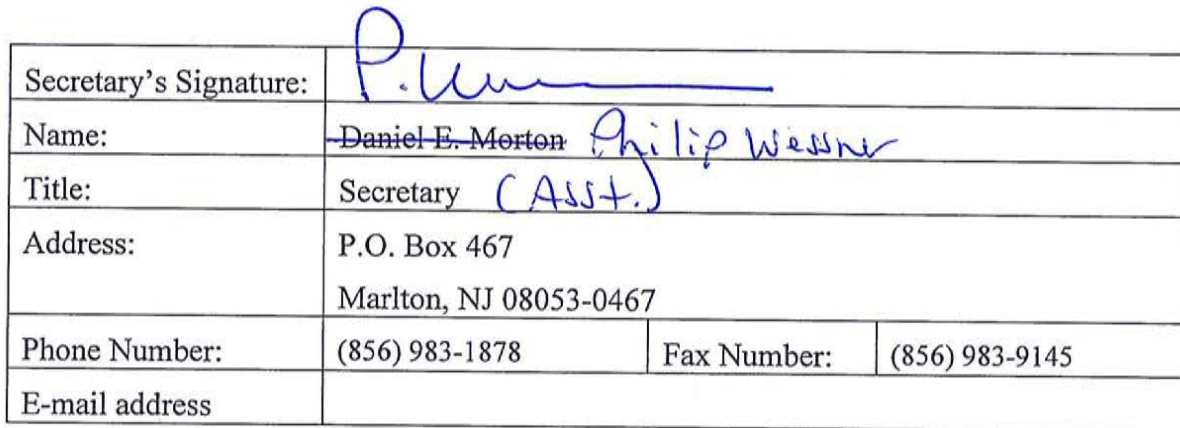 Secretary's Signature:
Name: Daniel E. Morton Philip Wessner
Title: Secretary (Asst.)
Address: P.O. Box 467
Marlton, NJ 08053-0467
Phone Number: (856) 983-1878 Fax Number: (856) 983-9145
E-mail address